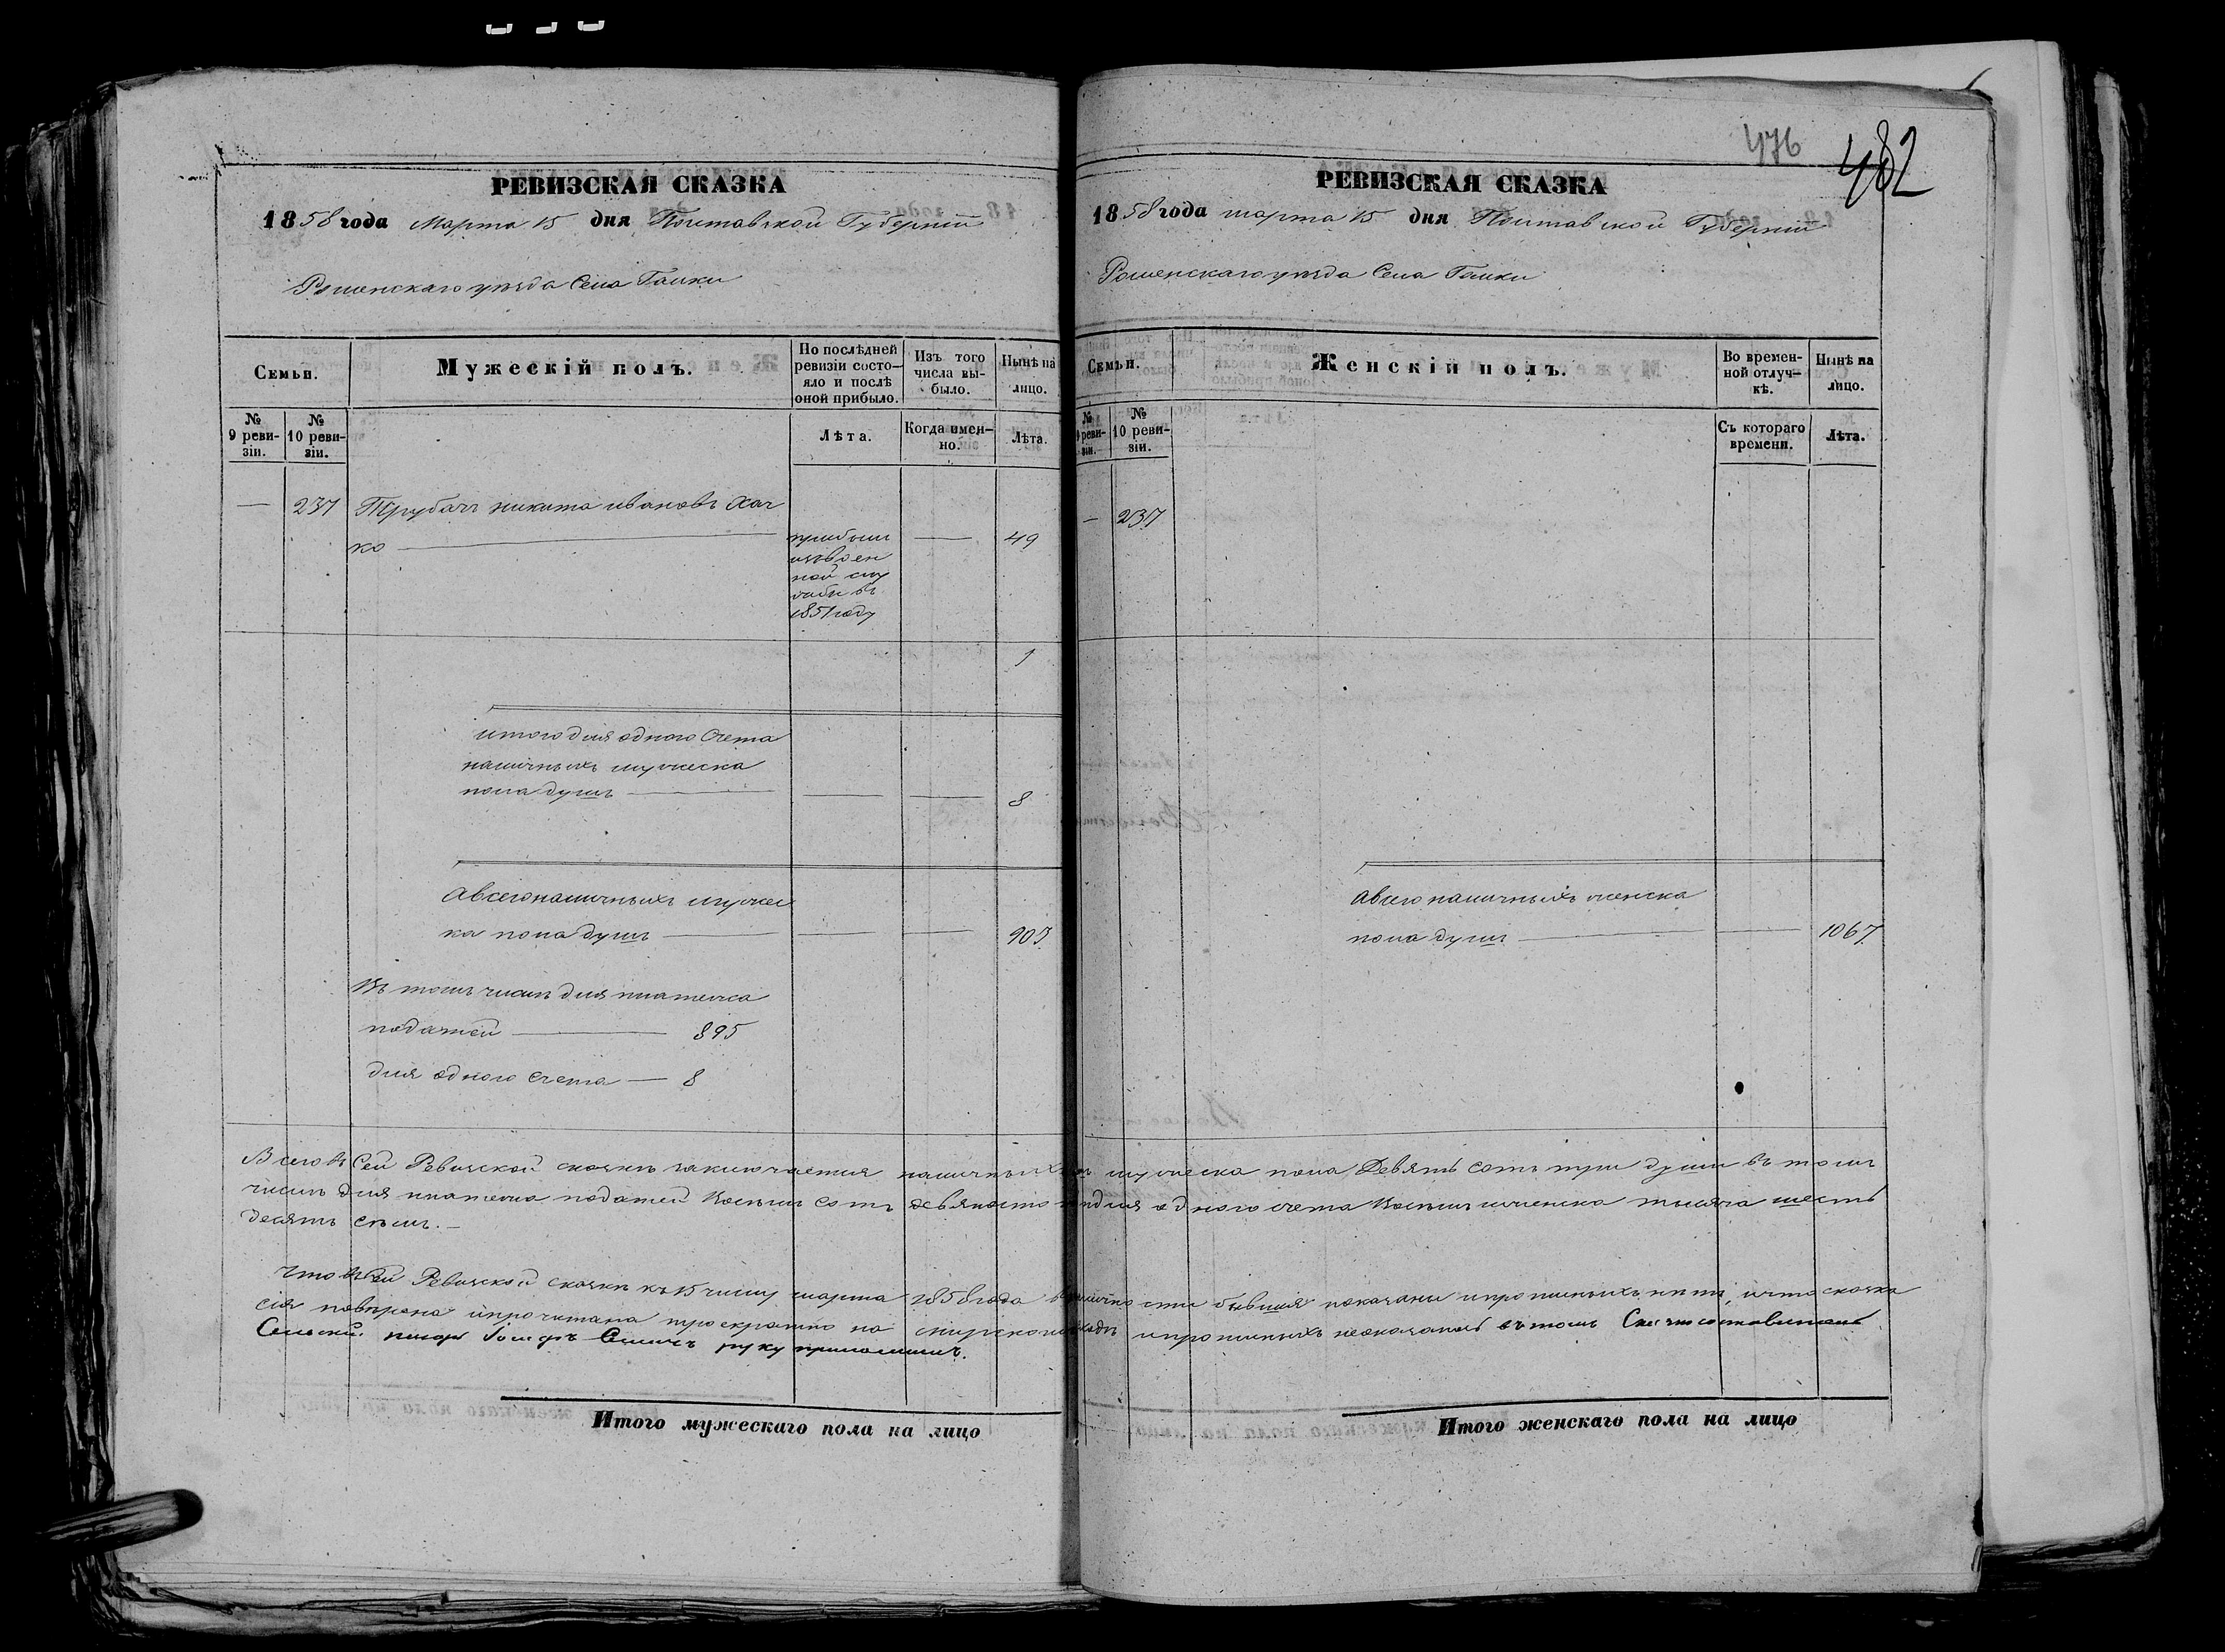 РЕВИЗСКАЯ СКАЗКА
1858 года Марта 15 дня Полтавской Губерніи
Роменскаго уѣзда Села Галки
Семьи.
Мужескій полъ.
По послѣдней ревизіи состояло и послѣ оной прибыло.
Изъ того числа выбыло.
Нынѣ на лицо.
№ 9 ревизіи.
№ 10 ревизіи.
Лѣта.
Когда именно.
Лѣта.
— 237 Трубачъ никита ивановъ Хач
ко — — 49
прибыл
изъвоен
ной слу
жбы въ
1851 году
1
итого для одного Счета
наличныхъ мужеска
пола душъ — — — 8
а всего наличныхъ мужес
ка пола душъ — — — 903
Въ томъ числѣ для платежа
податей — 895
для одного счета — 8
476
482
РЕВИЗСКАЯ СКАЗКА
1858 года марта 15 дня Полтавской Губерніи
Роменскаго уѣзда Села Галки
Семьи.
Женскій полъ.
Во временной отлучкѣ.
Нынѣ на лицо.
№ 9 ревизіи.
№ 10 ревизіи.
Съ котораго времени.
Лѣта.
— 237
а всего наличныхъ женска
пола душъ — — 1067
Всего въ Сей Ревизской сказкѣ заключается наличныхъ мужеска пола Девять сотъ три души въ томъ
числѣ для платежа податей Восемь сотъ девяносто для одного счета Восемь женска тысяча шесть
десятъ семь. —
Что въ сей Ревизской сказкѣ къ 15 числу марта 1858 года в наличности бывшія показаны и прописныхъ нитъ, и что сказка
сія повѣрена и прочитана троекратно на мирской и прописныхъ неоказалось въ томъ
Сельскій писарь руку приложилъ.
Итого мужескаго пола на лицо
Итого женскаго пола на лицо